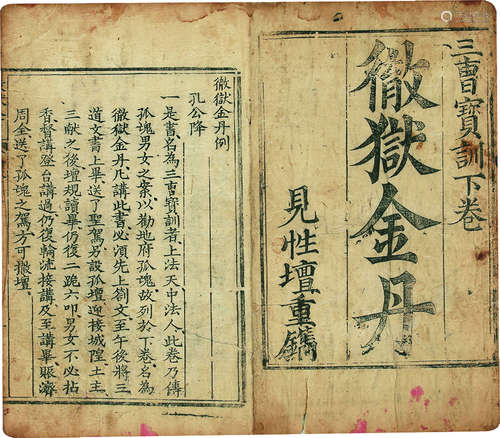 三會寶訓下卷
徹獄金丹
見性壇重鐫
徹獄金丹例
孔公降
一是書名為三會寶訓者上法天中法人此卷乃傳
孤魂男女之案以勸地府孤魂故列於下卷名為
徹獄金丹凡講此書必須先上劄文至午後將三
道文書上畢送了聖駕另設孤壇迎接城隍土主
三献之後壇規讀畢仍復二跪六叩男女不必拈
香督講登台講過仍復輪流接講及至講畢賑濟
周全送了孤魂之駕方可撤壇